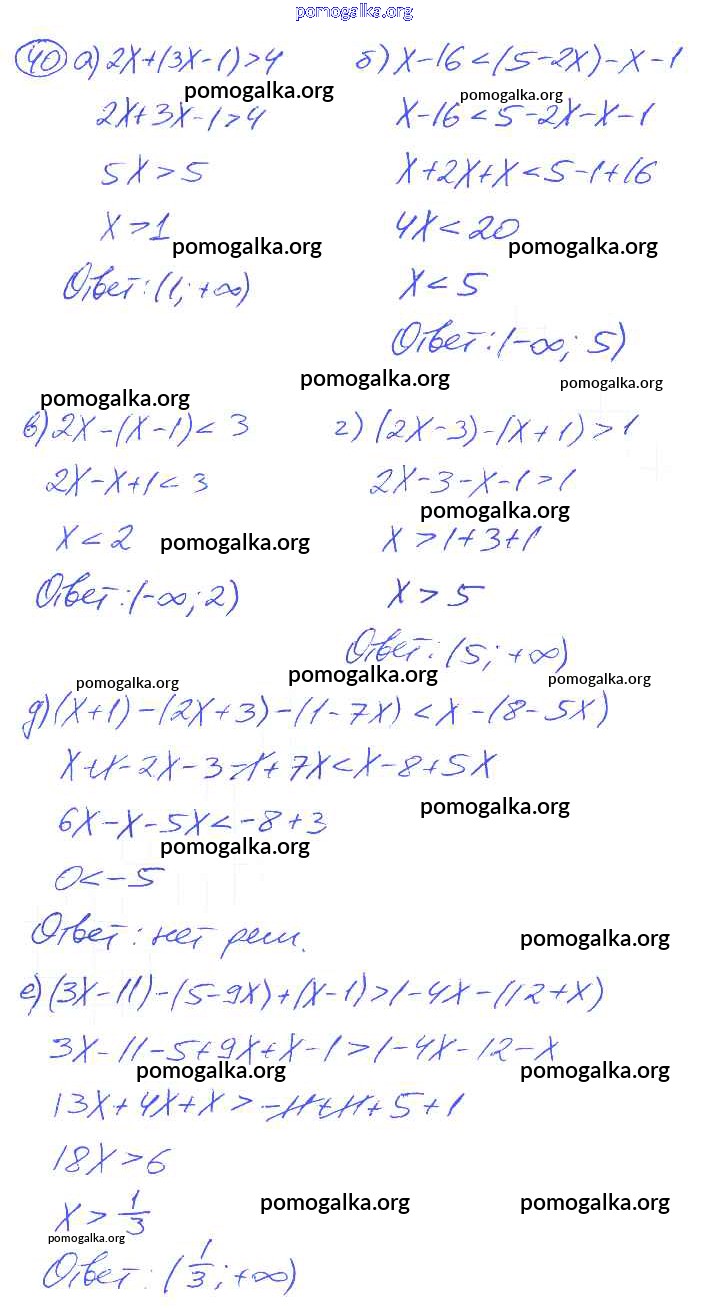 pomogalka.org
40 а) 2x+(3x-1)>4
pomogalka.org
2x+3x-1>4
5x>5
x>1
pomogalka.org
Ответ: (1; +∞)
б) x-16<(5-2x)-x-1
pomogalka.org
x-16<5-2x-x-1
x+2x+x<5-1+16
4x<20
pomogalka.org
x<5
Ответ: (-∞; 5)
pomogalka.org
pomogalka.org
pomogalka.org
в) 2x-(x-1)<3
2x-x+1<3
x<2
pomogalka.org
Ответ: (-∞; 2)
г) (2x-3)-(x+1)>1
2x-3-x-1>1
pomogalka.org
x>1+3+1
x>5
Ответ: (5; +∞)
pomogalka.org
pomogalka.org
pomogalka.org
д) (x+1)-(2x+3)-(1-7x)<x-(8-5x)
x+1-2x-3-1+7x<x-8+5x
pomogalka.org
6x-x-5x<-8+3
pomogalka.org
0<-5
Ответ: нет реш.
pomogalka.org
е) (3x-11)-(5-9x)+(x-1)>1-4x-(12+x)
3x-11-5+9x+x-1>1-4x-12-x
pomogalka.org
pomogalka.org
13x+4x+x>-11+11+5+1
18x>6
x>1/3
pomogalka.org
pomogalka.org
pomogalka.org
Ответ: (1/3; +∞)